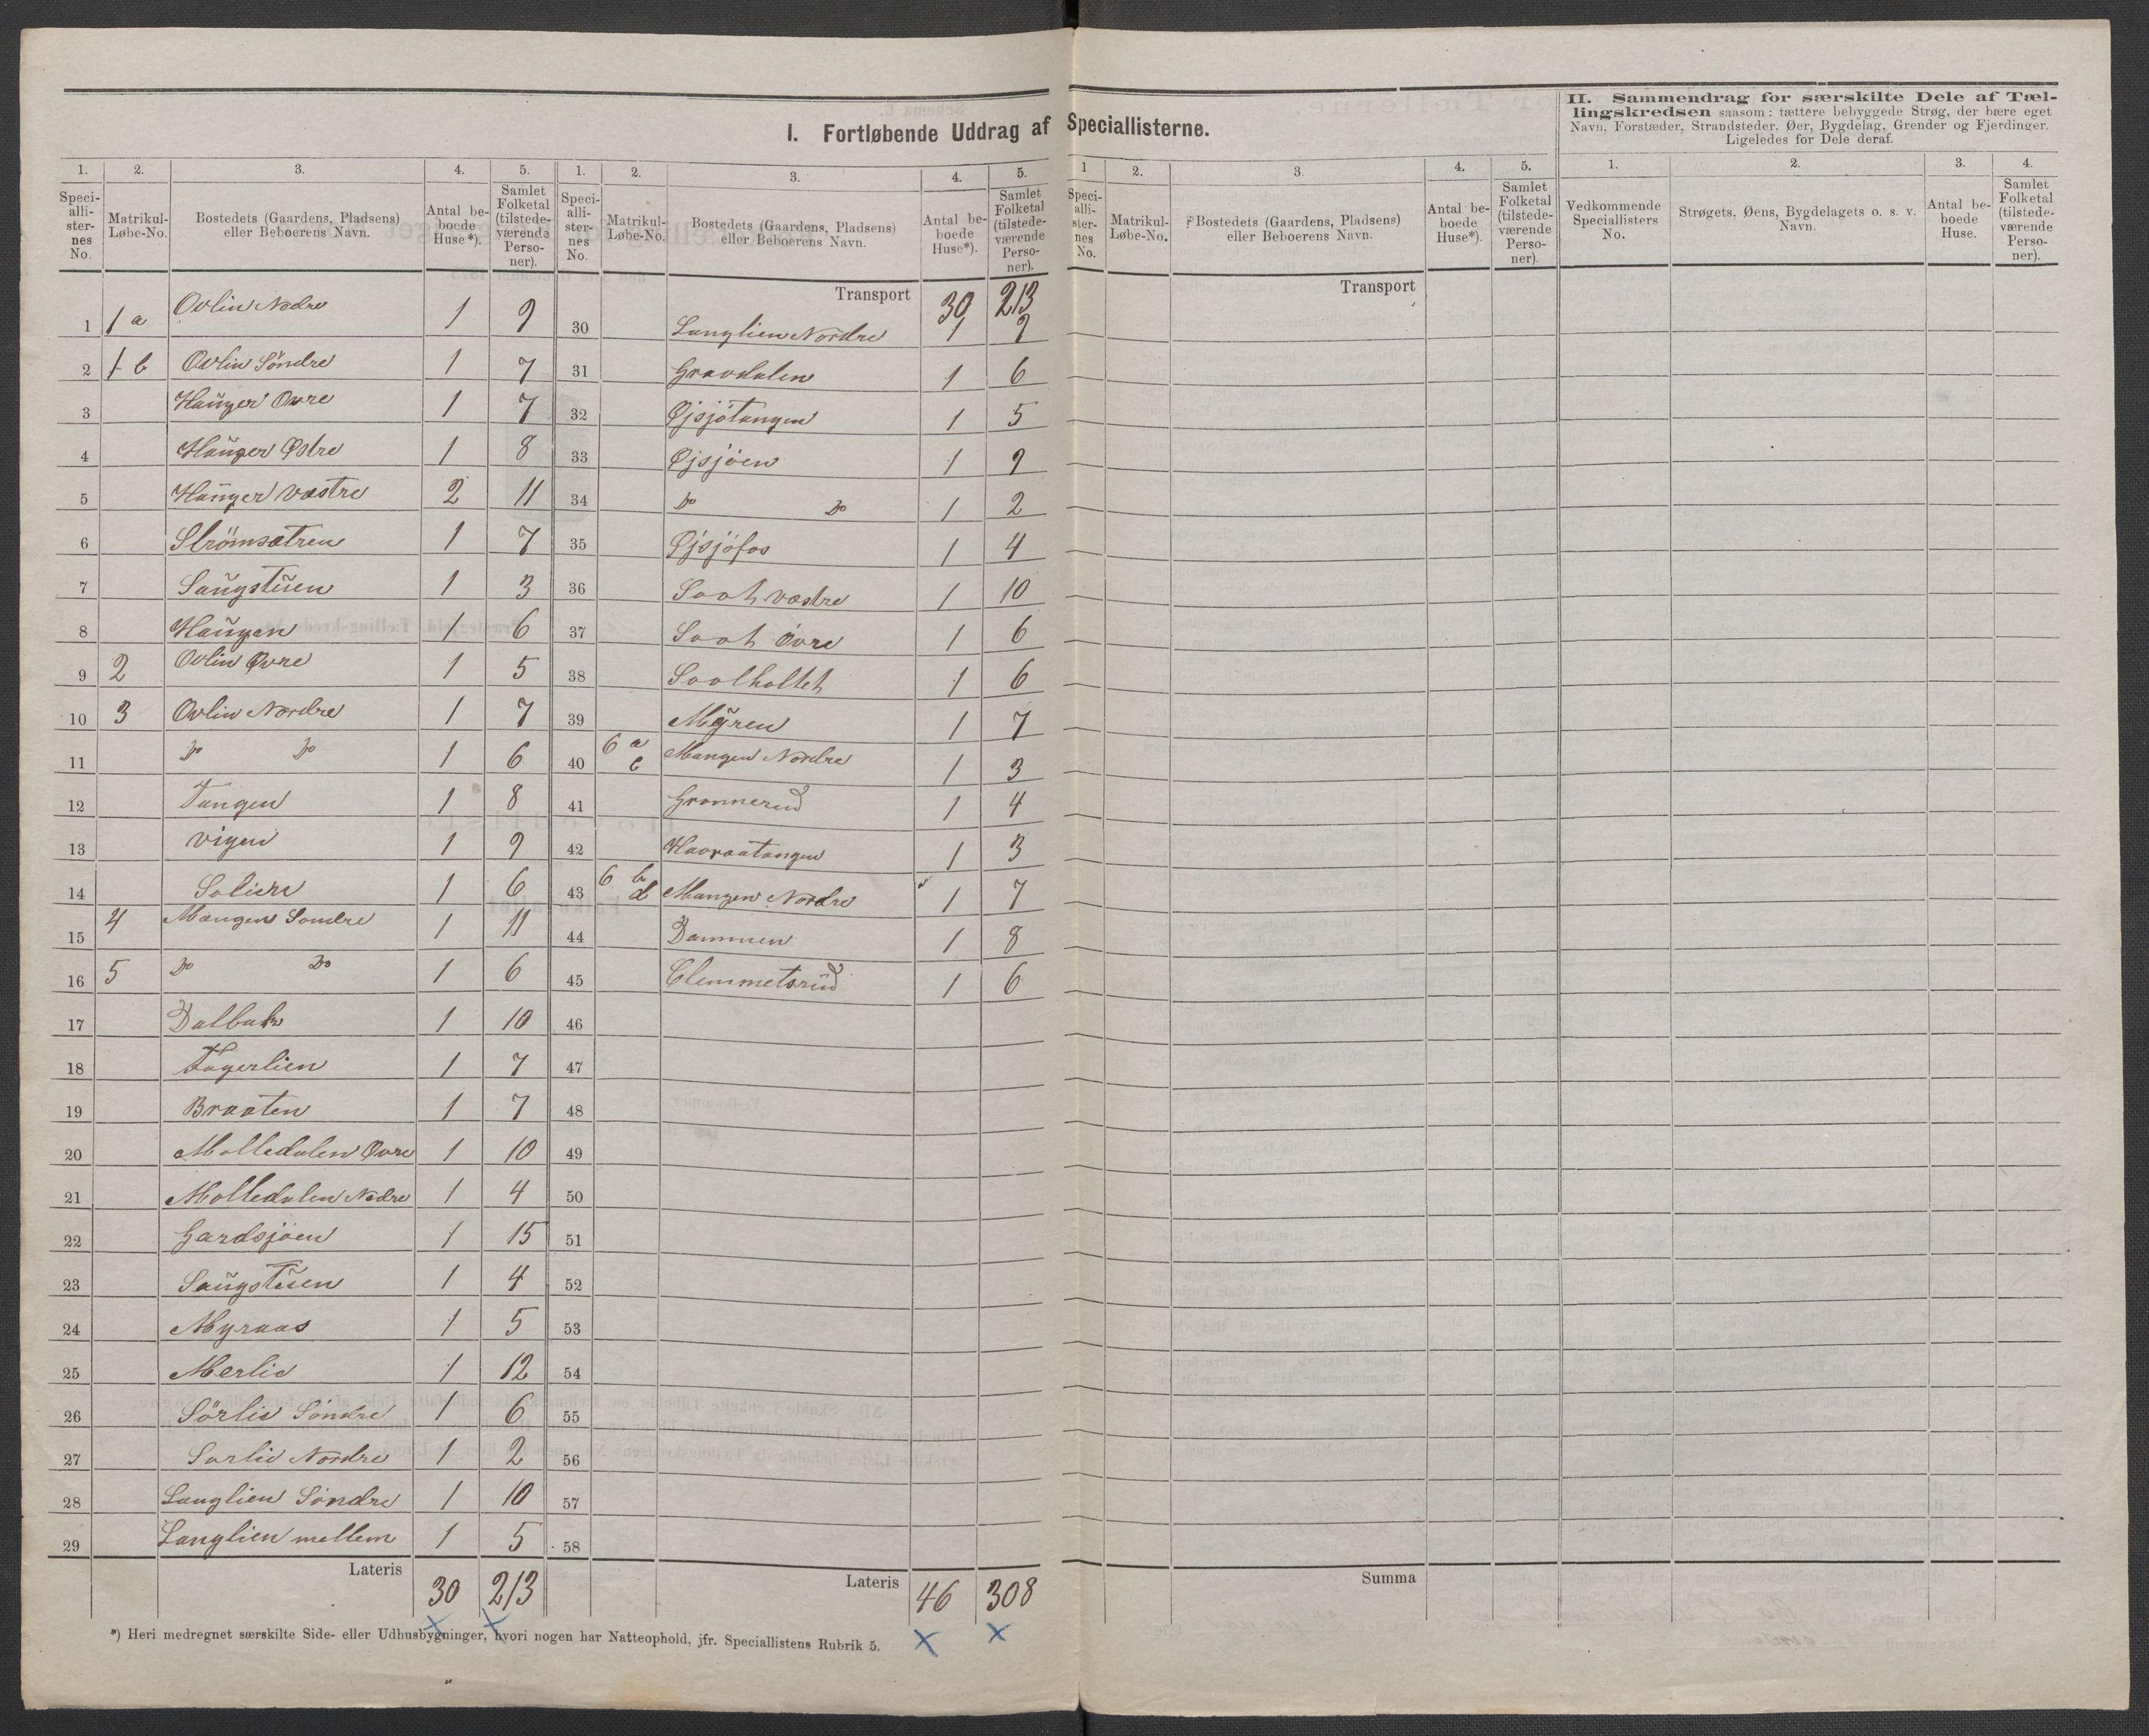 I. Fortløbende Uddrag af Speciallisterne.
II. Sammendrag for særskilte Dele af Tæl-
lingskredsen saasom: tættere bebyggede Strøg, der bære eget
Navn, Forstæder, Strandsteder, Øer, Bygdelag, Grender og Fjerdinger.
Ligeledes for Dele deraf.
1. 2. 3. 4. 5. 1. 2. 3. 4. 5. 1 2. 3. 4. 5. 1. 2. 3. 4.
Speci-
alli-
ster-
nes
No.
Matrikul-
Løbe-No.
Bostedets (Gaardens, Pladsens)
eller Beboerens Navn.
Antal be-
boede
Huse*).
Samlet
Folketal
(tilstede-
værende
Perso-
ner).
Speci-
alli-
ster-
nes
No.
Matrikul-
Løbe-No.
Bostedets (Gaardens, Pladsens)
eller Beboerens Navn.
Antal be-
boede
Huse*).
Samlet
Folketal
(tilstede-
værende
Perso-
ner).
Speci-
alli-
ster-
nes
No.
Matrikul-
Løbe-No.
Bostedets (Gaardens, Pladsens)
eller Beboerens Navn.
Antal be-
boede
Huse*).
Samlet
Folketal
(tilstede-
værende
Perso-
ner).
Vedkommende
Speciallisters
No.
Strøgets, Øens, Bygdelagets o. s. v.
Navn.
Antal be-
boede
Huse.
Samlet
Folketal
(tilstede-
værende
Perso-
ner).
1 1 a Ovlin Nedre 1 9
2 1 b Ovlin Söndre 1 7
3 Hauger Øvre 1 7
4 Hauger Østre 1 8
5 Hauger væstre 2 11
6 Strömsætren 1 7
7 Saugstuen 1 3
8 Haugen 1 6
9 2 Ovlin Øvre 1 5
10 3 Ovlin Nordre 1 7
11 Do Do 1 6
12 Tangen 1 8
13 Vigen 1 9
14 Solien 1 6
15 4 Mangen Sondre 1 11
16 5 Do Do 1 6
17 Dalbak 1 10
18 Fagerlien 1 7
19 Braaten 1 7
20 Molledalen Øvre 1 10
21 Molledalen Nedre 1 4
22 Gardsjöen 1 15
23 Saugstuen 1 4
24 Myraas 1 5
25 Merlie 1 12
26 Sörlie Söndre 1 6
27 Sorlie Nordre 1 2
28 Langlien Söndre 1 10
29 Langlien mellem 1 5
Lateris 30 213
Transport 30 213
30 Langlien Nordre 1 9
31 Gravdalen 1 6
32 Øjsjötangen 1 5
33 Øjsjöen 1 9
34 Do Do 1 2
35 Øjsjöfos 1 4
36 Soot væstre 1 10
37 Soot övre 1 6
38 Sootholtet 1 6
39 Myren 1 7
40 6 a c Mangen Nordre 1 3
41 Gronnerud 1 4
42 Havraatangen 1 3
43 6 b d Mangen Nordre 1 7
44 Dammen 1 8
45 Clemmetsrud 1 6
46
47
48
49
50
51
52
53
54
55
56
57
58
Lateris 46 308
Transport
Summa
*) Heri medregnet særskilte Side- eller Udhusbygninger, hvori nogen har Natteophold, jfr. Speciallistens Rubrik 5.